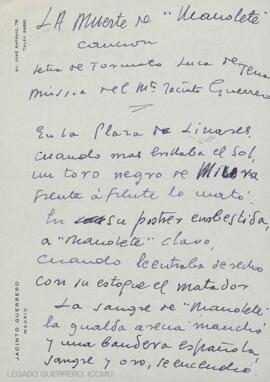 AV. JOSÉ ANTONIO, 78
TELEF.
LA Muerte de "Manolete"
cancion
letra de Torcuato Luca de Tena
música del Mº Jacinto Guerrero
En la Plaza de Linares,
cuando mas brillaba el sol,
un toro negro de Miura
frente á frente lo mató.
En su postrer embestida,
a "Manolete" clavo,
cuando le entraba derecho
con su estoque el matador.
La sangre de "Manolete"
la gualda arena manchó
y una bandera española,
sangre y oro, se encendió.
JACINTO GUERRERO
MADRID
LEGADO GUERRERO. ICCMU